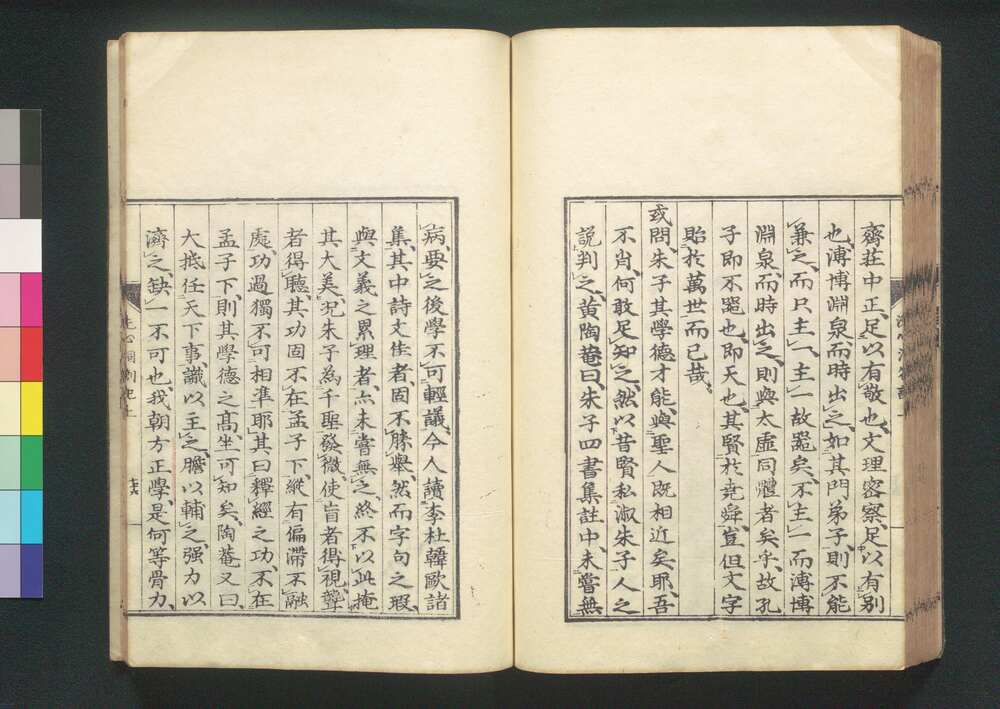 齊莊中正、足以有敬也、文理密察、足以有別
也、溥博淵泉、而時出之、如其門弟子、則不能
兼之、而只主一、主一故器矣、不主一而溥博
淵泉、而時出之、則與太虛同體者矣乎、故孔
子即不器也、即天也、其賢於堯舜、豈但文字
貽於萬世而已哉、
或問朱子其學德才能、與聖人既相近矣耶、吾
不肖、何敢足知之、然以昔賢私淑朱子人之
說判之、黃陶菴曰、朱子四書集註中、未嘗無
病、要之後學不可輕議、今人讀李杜韓歐諸
集、其中詩文佳者、固不勝舉、然而字句之瑕、
與文義之累理者、亦未嘗無之、終不以此掩
其大美、況朱子為千聖發微、使盲者得視、聾
者得聽、其功固不在孟子下、縱有偏滯不融
處、功過獨不可相準耶、其曰釋經之功、不在
孟子下、則其學德之高、坐可知矣、陶菴又曰、
大抵任天下事、識以主之、膽以輔之、强力以
濟之、缺一不可也、我朝方正學、是何等骨力、
洗心洞劄記上